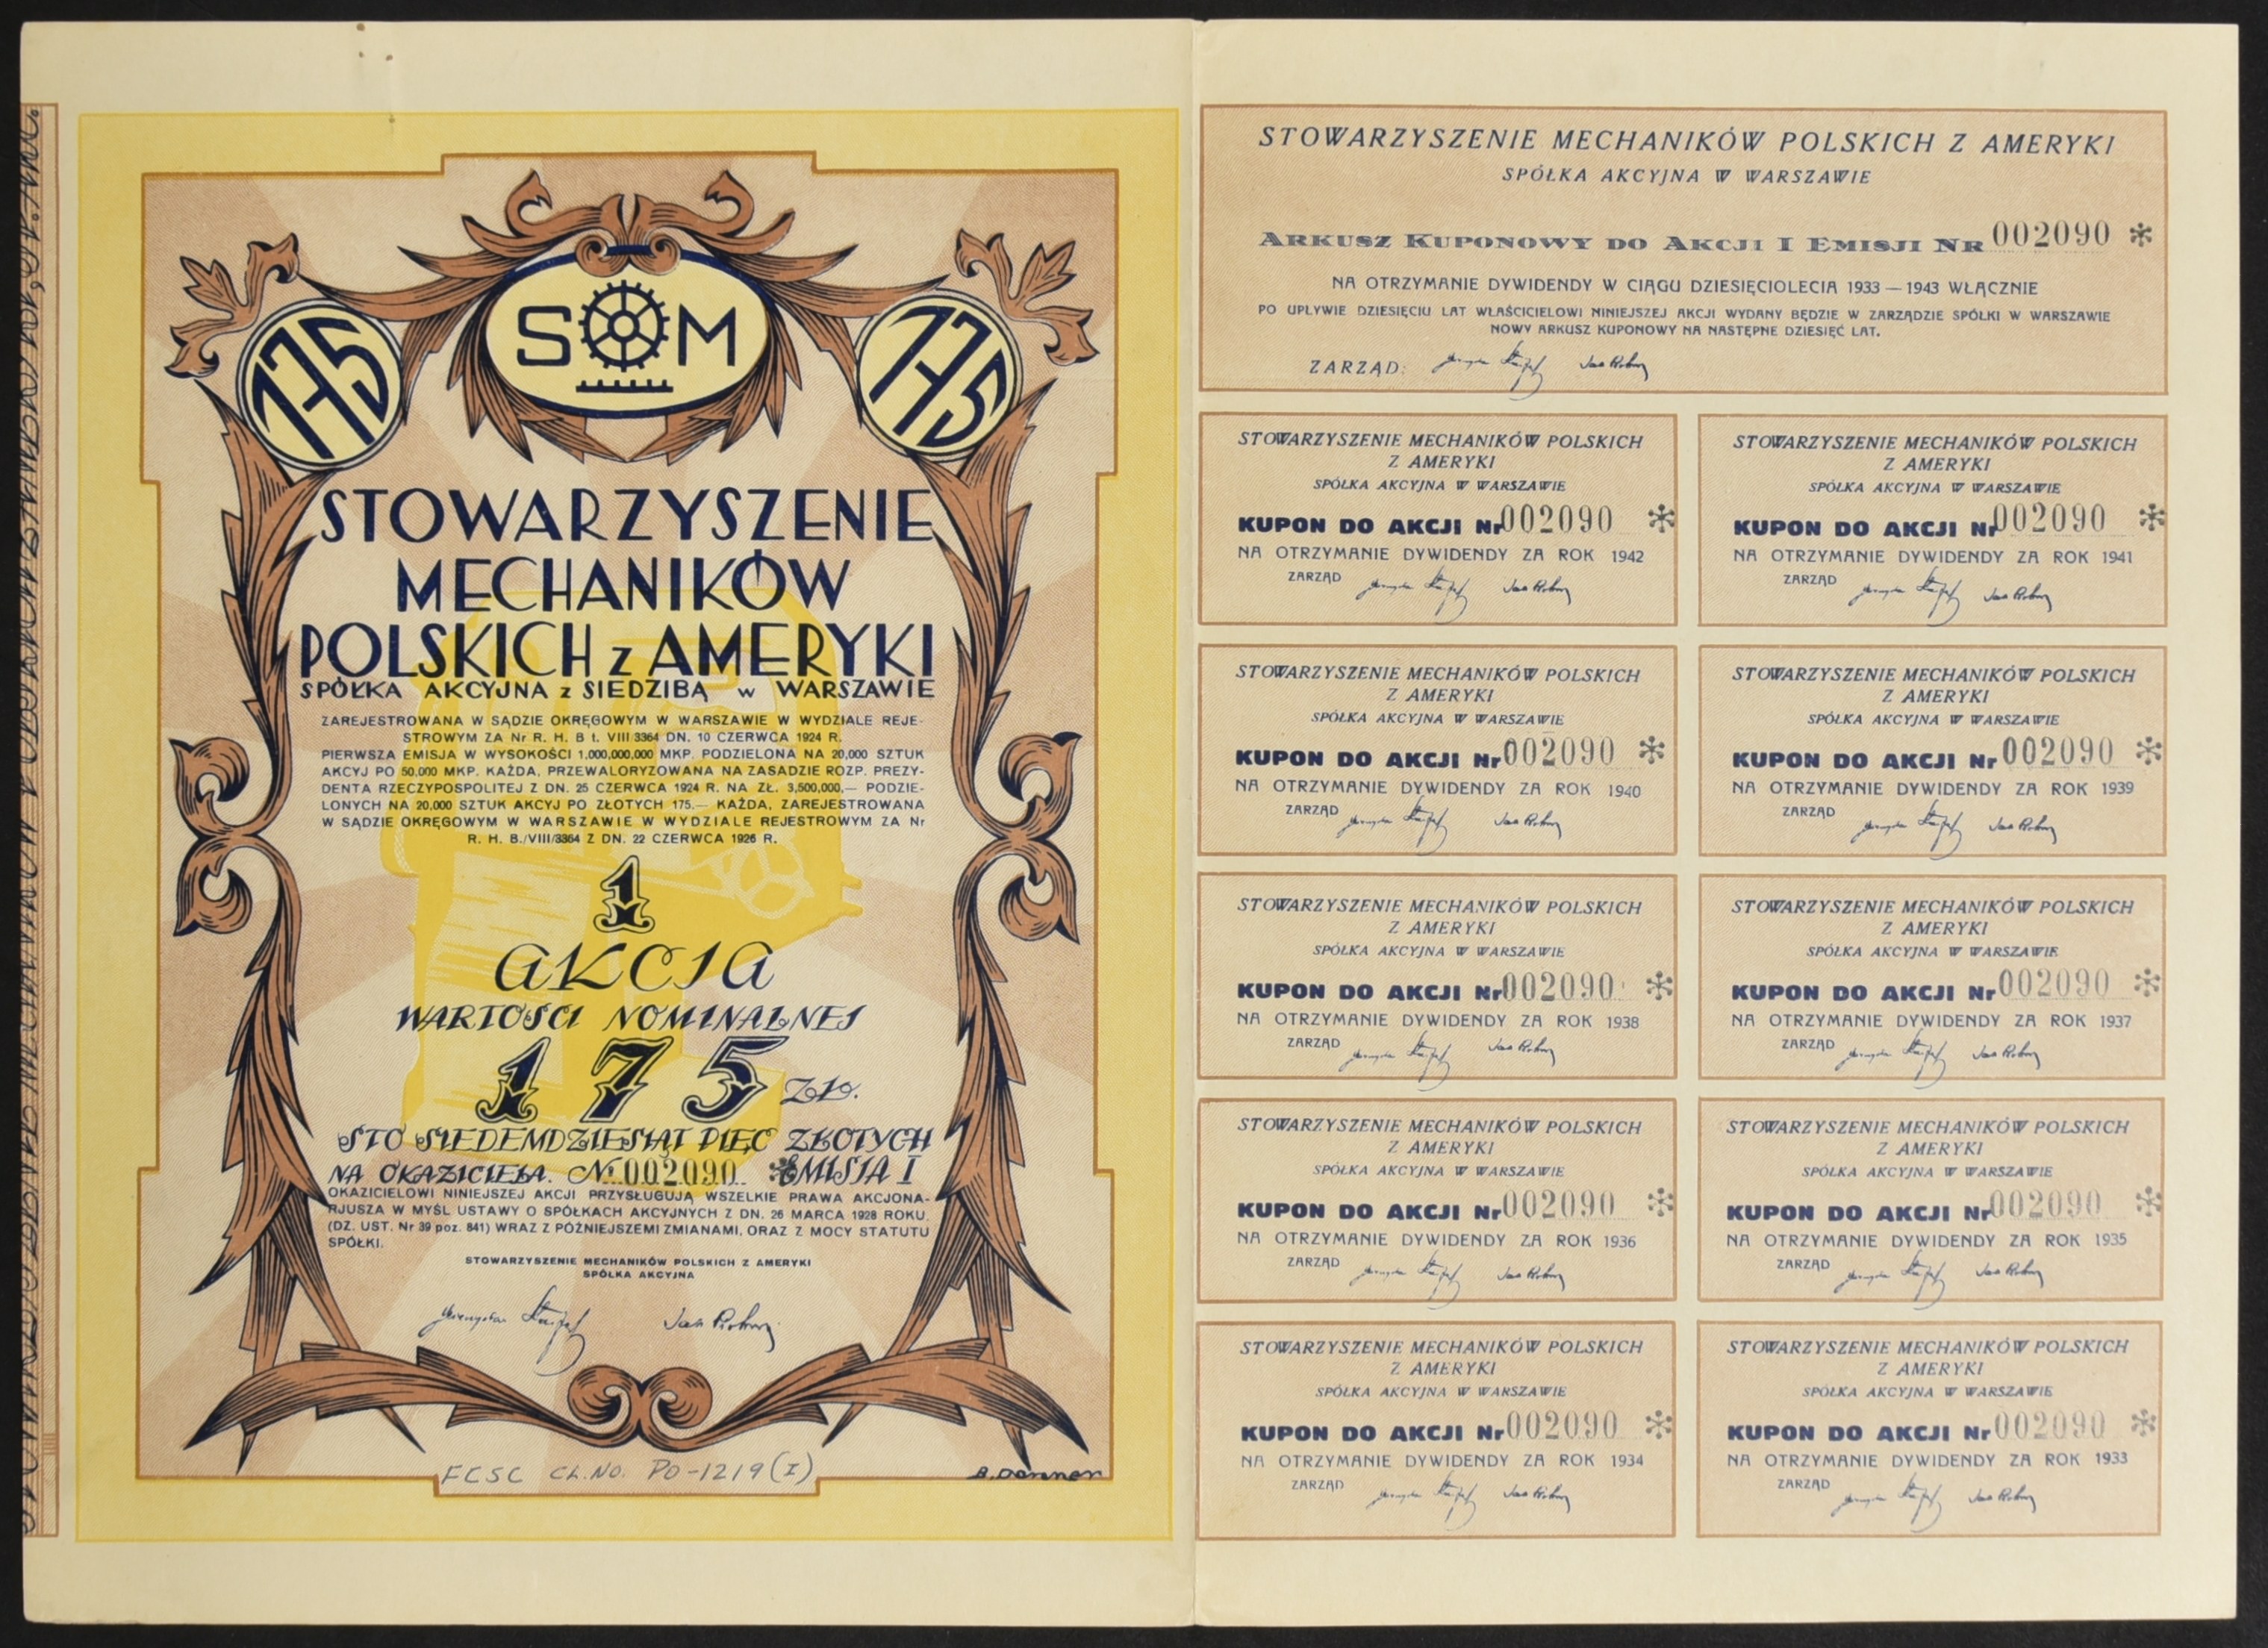 175
S M
175
STOWARZYSZENIE
MECHANIKÓW
POLSKICH z AMERYKI
SPÓŁKA AKCYJNA z SIEDZIBĄ w WARSZAWIE
ZAREJESTROWANA W SĄDZIE OKRĘGOWYM W WARSZAWIE W WYDZIALE REJE-
STROWYM ZA Nr R. H. B t. VIII 3364 DN. 10 CZERWCA 1924 R.
PIERWSZA EMISJA W WYSOKOŚCI 1,000,000,000 MKP. PODZIELONA NA 20,000 SZTUK
AKCYJ PO 50,000 MKP. KAŻDA, PRZEWALORYZOWANA NA ZASADZIE ROZP. PREZY-
DENTA RZECZYPOSPOLITEJ Z DN. 25 CZERWCA 1924 R. NA ZŁ. 3,500,000,— PODZIE-
LONYCH NA 20,000 SZTUK AKCYJ PO ZŁOTYCH 175.— KAŻDA, ZAREJESTROWANA
W SĄDZIE OKRĘGOWYM W WARSZAWIE W WYDZIALE REJESTROWYM ZA Nr
R. H. B./VIII/3364 Z DN. 22 CZERWCA 1926 R.
1
AKCJA
WARTOŚCI NOMINALNEJ
175 ZŁ.
STO SIEDEMDZIESIĄT PIĘĆ ZŁOTYCH
NA OKAZICIELA. No 002090 * EMISJA I
OKAZICIELOWI NINIEJSZEJ AKCJI PRZYSŁUGUJĄ WSZELKIE PRAWA AKCJONA-
RJUSZA W MYŚL USTAWY O SPÓŁKACH AKCYJNYCH Z DN. 26 MARCA 1928 ROKU.
(DZ. UST. Nr 39 poz. 841) WRAZ Z PÓŹNIEJSZEMI ZMIANAMI, ORAZ Z MOCY STATUTU
SPÓŁKI.
STOWARZYSZENIE MECHANIKÓW POLSKICH Z AMERYKI
SPÓŁKA AKCYJNA
FCSC CL.NO. PO-1219 (I)
STOWARZYSZENIE MECHANIKÓW POLSKICH Z AMERYKI
SPÓŁKA AKCYJNA W WARSZAWIE
ARKUSZ KUPONOWY DO AKCJI I EMISJI NR 002090 *
NA OTRZYMANIE DYWIDENDY W CIĄGU DZIESIĘCIOLECIA 1933 — 1943 WŁĄCZNIE
PO UPŁYWIE DZIESIĘCIU LAT WŁAŚCICIELOWI NINIEJSZEJ AKCJI WYDANY BĘDZIE W ZARZĄDZIE SPÓŁKI W WARSZAWIE
NOWY ARKUSZ KUPONOWY NA NASTĘPNE DZIESIĘĆ LAT.
ZARZĄD:
STOWARZYSZENIE MECHANIKÓW POLSKICH
Z AMERYKI
SPÓŁKA AKCYJNA W WARSZAWIE
KUPON DO AKCJI Nr 002090 *
NA OTRZYMANIE DYWIDENDY ZA ROK 1942
ZARZĄD
STOWARZYSZENIE MECHANIKÓW POLSKICH
Z AMERYKI
SPÓŁKA AKCYJNA W WARSZAWIE
KUPON DO AKCJI Nr 002090 *
NA OTRZYMANIE DYWIDENDY ZA ROK 1941
ZARZĄD
STOWARZYSZENIE MECHANIKÓW POLSKICH
Z AMERYKI
SPÓŁKA AKCYJNA W WARSZAWIE
KUPON DO AKCJI Nr 002090 *
NA OTRZYMANIE DYWIDENDY ZA ROK 1940
ZARZĄD
STOWARZYSZENIE MECHANIKÓW POLSKICH
Z AMERYKI
SPÓŁKA AKCYJNA W WARSZAWIE
KUPON DO AKCJI Nr 002090 *
NA OTRZYMANIE DYWIDENDY ZA ROK 1939
ZARZĄD
STOWARZYSZENIE MECHANIKÓW POLSKICH
Z AMERYKI
SPÓŁKA AKCYJNA W WARSZAWIE
KUPON DO AKCJI Nr 002090 *
NA OTRZYMANIE DYWIDENDY ZA ROK 1938
ZARZĄD
STOWARZYSZENIE MECHANIKÓW POLSKICH
Z AMERYKI
SPÓŁKA AKCYJNA W WARSZAWIE
KUPON DO AKCJI Nr 002090 *
NA OTRZYMANIE DYWIDENDY ZA ROK 1937
ZARZĄD
STOWARZYSZENIE MECHANIKÓW POLSKICH
Z AMERYKI
SPÓŁKA AKCYJNA W WARSZAWIE
KUPON DO AKCJI Nr 002090 *
NA OTRZYMANIE DYWIDENDY ZA ROK 1936
ZARZĄD
STOWARZYSZENIE MECHANIKÓW POLSKICH
Z AMERYKI
SPÓŁKA AKCYJNA W WARSZAWIE
KUPON DO AKCJI Nr 002090 *
NA OTRZYMANIE DYWIDENDY ZA ROK 1935
ZARZĄD
STOWARZYSZENIE MECHANIKÓW POLSKICH
Z AMERYKI
SPÓŁKA AKCYJNA W WARSZAWIE
KUPON DO AKCJI Nr 002090 *
NA OTRZYMANIE DYWIDENDY ZA ROK 1934
ZARZĄD
STOWARZYSZENIE MECHANIKÓW POLSKICH
Z AMERYKI
SPÓŁKA AKCYJNA W WARSZAWIE
KUPON DO AKCJI Nr 002090 *
NA OTRZYMANIE DYWIDENDY ZA ROK 1933
ZARZĄD